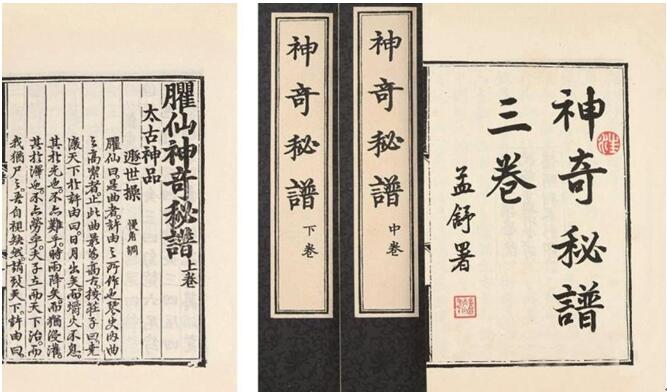 臞仙神奇秘譜上卷
太古神品
遯世操 慢角調
臞仙曰是曲者許由之所作也琴史內曲
之高者也此曲最為高古按莊子曰堯
讓天下於許由曰日月出矣而爝火不息
其於光也不亦難乎時雨降矣而猶浸灌
其於澤也不亦勞乎夫子立而天下治而
我猶尸之吾自視缺然請致天下許由曰
神奇秘譜
下卷
神奇秘譜
中卷
神奇秘譜
三卷
孟舒署